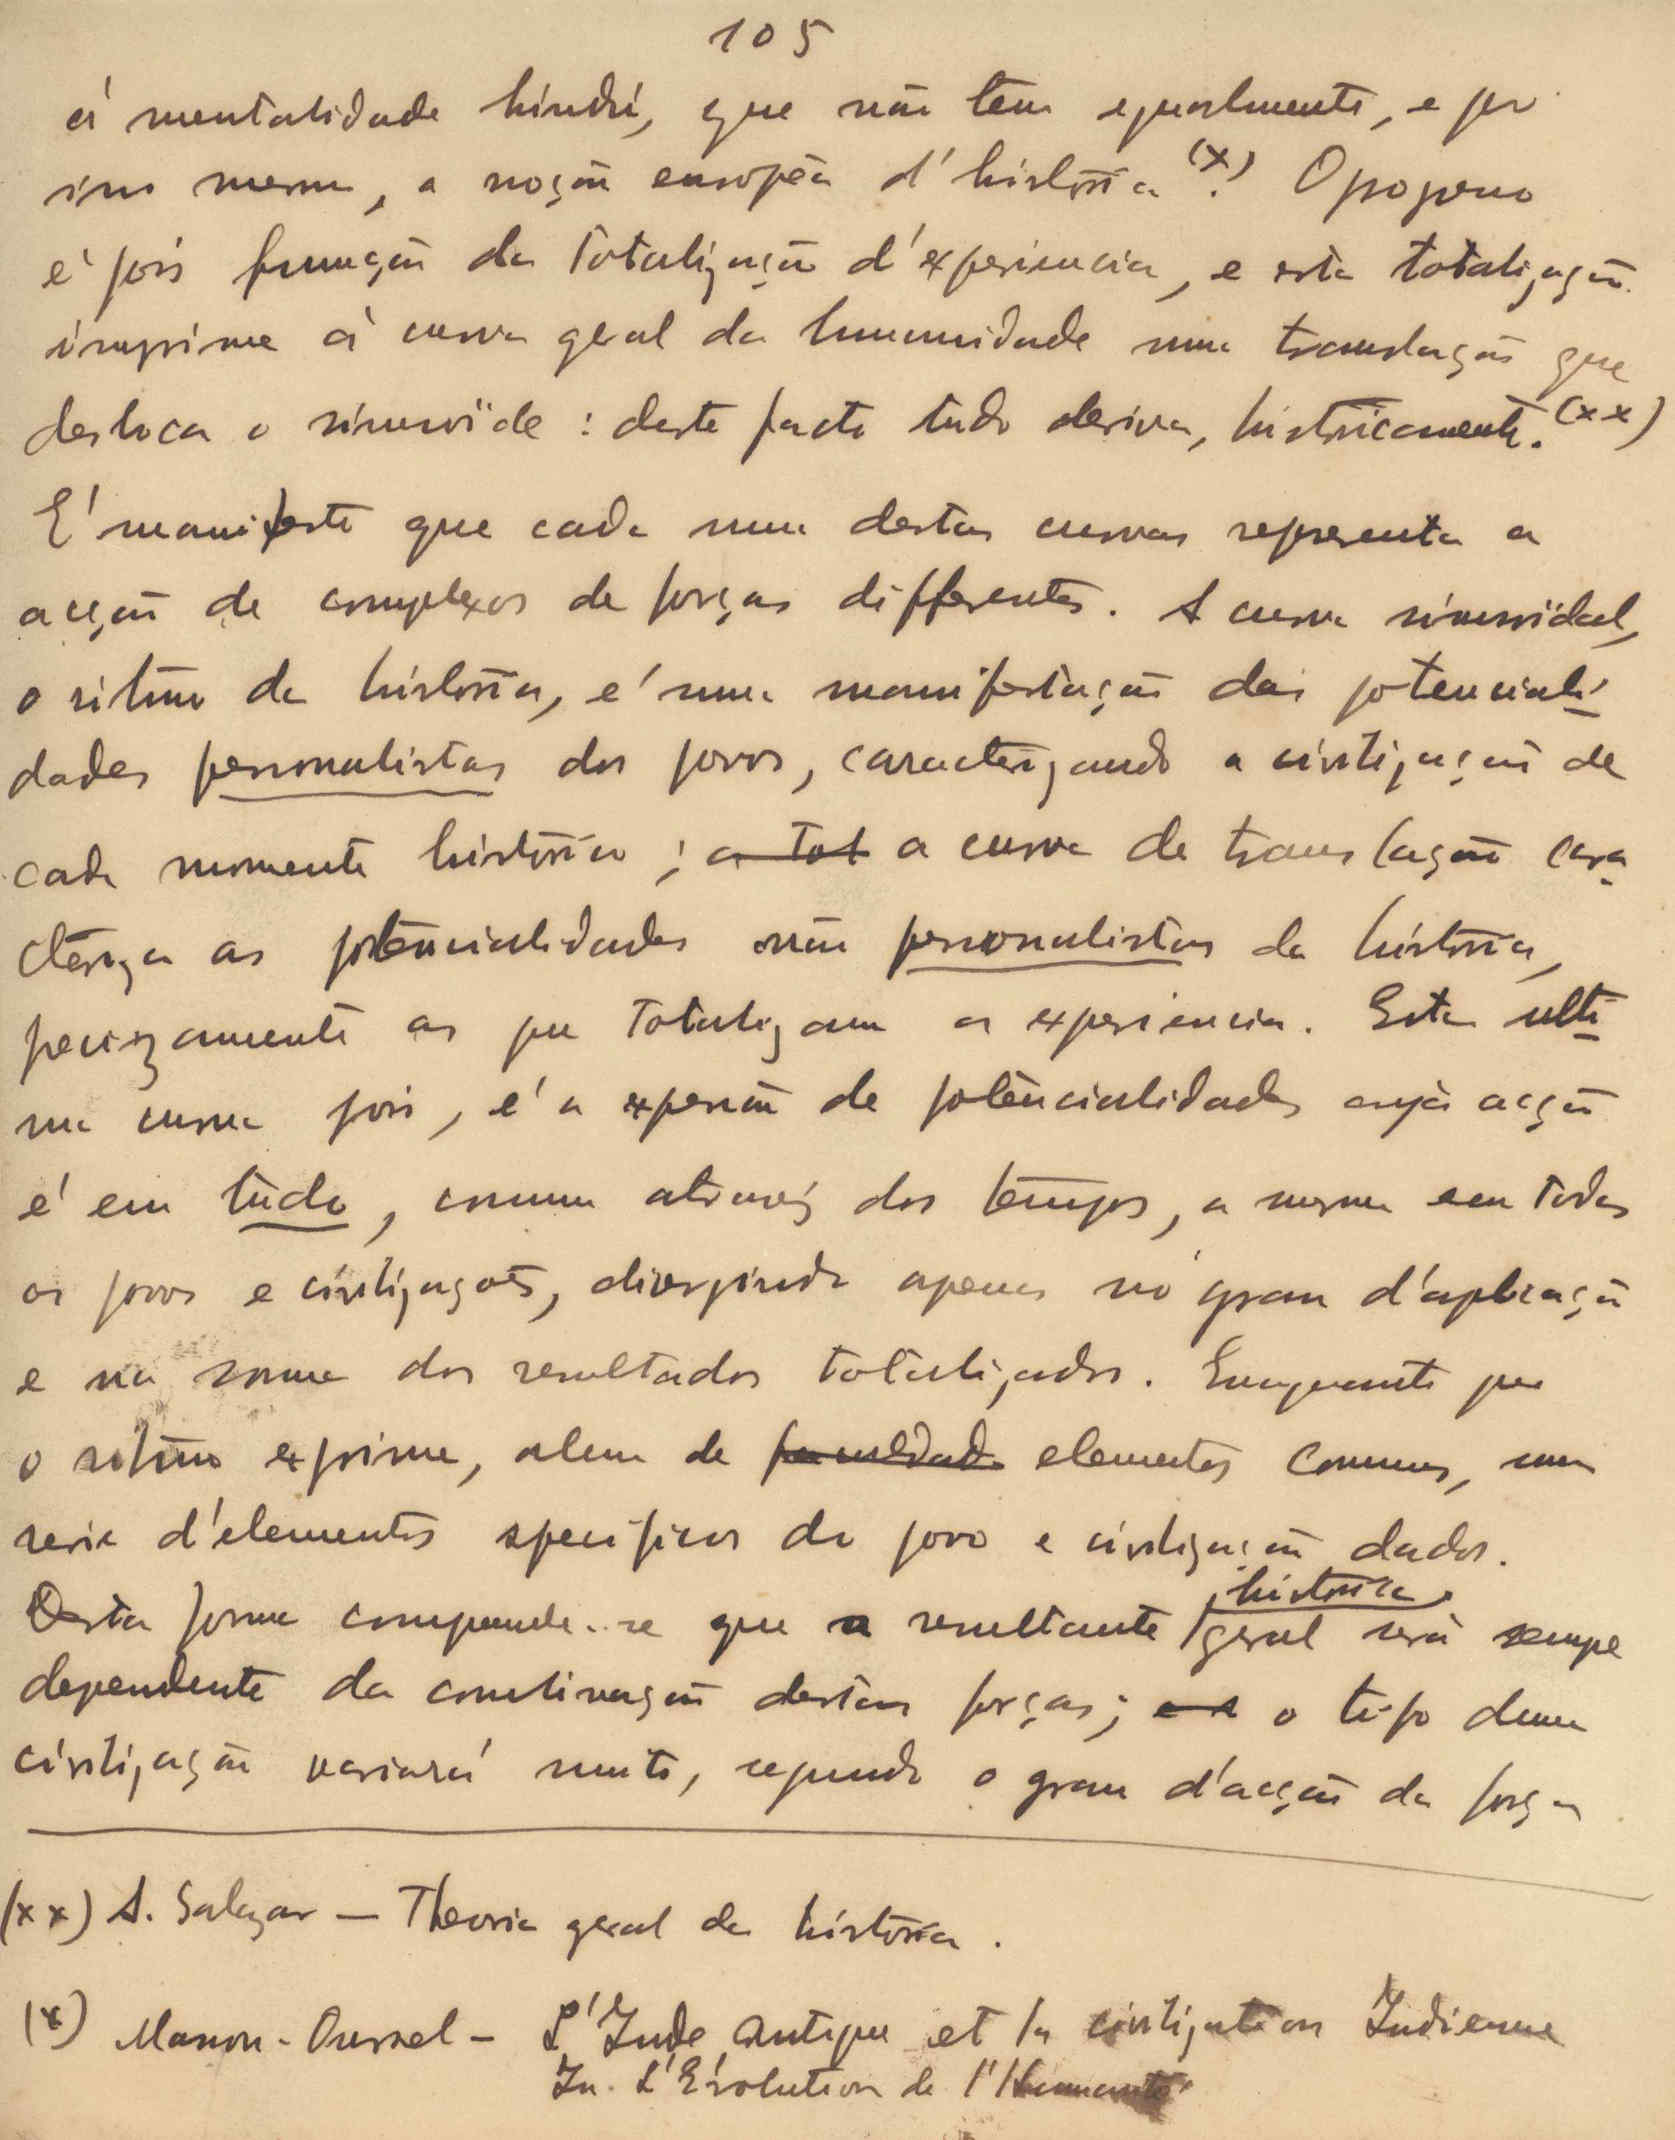 105
á mentalidade hindú, que não tem egualmente, e por
isso mesmo, a noção européa d'história (x). O progresso
é pois funcção da totalização d'experiencia, e esta totalização
imprime á curva geral da humanidade uma translação que
desloca o sinusoïde : deste facto tudo deriva, históricamente. (xx)
E' manifesto que cada uma destas curvas representa a
acção de complexos de forças differentes. A curva sinusoïdal,
o ritmo da história, e' uma manifestação das potenciali-
dades personalistas dos povos, caracterizando a civilização de
cada momento histórico ; a Tot a curva de translação cara-
cteriza as potencialidades não personalistas da história,
precizamente as que totalizam a experiencia. Esta ulti-
ma curva pois, e' a expressão de potencialidades cuja acção
e' em tudo, comum através dos tempos, a mesma em todos
os povos e civilizações, divergindo apenas no grau d'aplicação
e na soma dos resultados totalizados. Enquanto que
o ritmo exprime, alem de elementos comuns, uma
serie d'elementos specificos do povo e civilização dados.
Desta forma comprende-se que a resultante histórica geral será sempre
dependente da combinação destas forças; o tipo duma
civilização variará muito, segundo o grau d'acção da força
(xx) A. Salazar — Theoria geral da história .
(x) Masson-Oursel – L'Inde Antique et la civilization Indienne
In. L'Évolution de l'Humanité